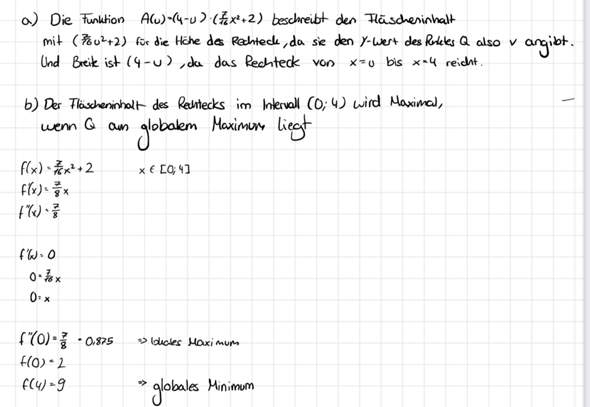 a) Die Funktion A(u)=(4-u)·(7/16x²+2) beschreibt den Fläscheninhalt
mit (7/16u²+2) für die Höhe des Rechteck, da sie den y-Wert des Punktes Q also v angibt.
Und Breite ist (4-u), da das Rechteck von x=u bis x=4 reicht.
b) Der Fläscheninhalt des Rechtecks im Intervall (0;4) wird Maximal,
wenn Q am globalem Maximum liegt
f(x)=7/16x²+2 x ∈ [0;4]
f'(x)=7/8x
f''(x)=7/8
f'(x)=0
0=7/8x
0=x
f''(0)=7/8=0,875 => lokales Maximum
f(0)=2
f(4)=9 => globales Minimum